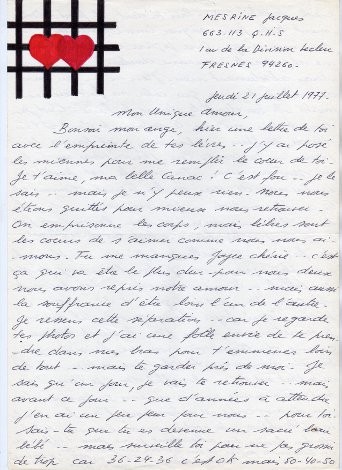 MESRINE Jacques
663.113 Q.H.S
1 av de la Division Leclerc
FRESNES 94260-
Jeudi 21 juillet 1977.
Mon Unique amour,
Bonsoir mon ange, hier une lettre de toi
avec l'empreinte de tes lèvres.. J'y ai posé
les miennes pour me remplir le coeur de toi.
Je t'aime, ma belle Canac! C'est fou.. je le
sais.. mais je n'y peux rien. Nous nous
étions quittés pour mieux nous retrouver.
On emprisonne les corps, mais libres sont
les coeurs de s'aimer comme nous nous ai-
-mons. Tu me manques Joyce chérie.. c'est
ça qui va être le plus dur pour nous deux
nous avons repris notre amour... mais aussi
la souffrance d'être loin l'un de l'autre.
Je ressens cette séparation.. car je regarde
tes photos et j'ai une folle envie de te pren-
dre dans mes bras pour t'emmener loin
de tout.. mais te garder près de moi. Je
sais qu'un jour, je vais te retrouver... mais
avant ce jour.. que d'années à attendre
J'en ai un peu peur pour nous.. pour toi
sais-tu que tu es devenue un sacré beau
bébé.. mais surveille toi pour ne pas grossir
de trop car 36-24-36 c'est OK mais 50-40-50